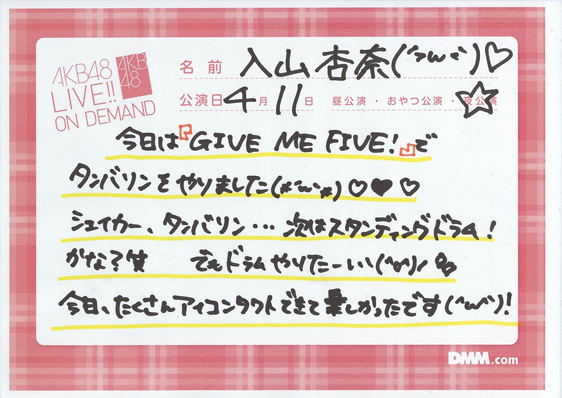 AKB48
LIVE!!
ON DEMAND
AKB
48
名前 入山杏奈(´つω`)♡
公演日 4月11日 昼公演・おやつ公演・夜公演
今日は『GIVE ME FIVE!』で
タンバリンをやりました(*´ω`*)♡♥♡
シェイカー、タンバリン…次はスタンディングドラム!
かな?笑 でもドラムやりたーい(´∀`)/
今日、たくさんアイコンタクトできて楽しかったです(´ω`)!
DMM.com